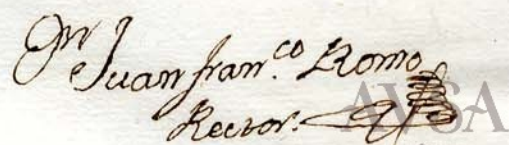 Dr Juan fran.co Romo
Rector.
AVSA